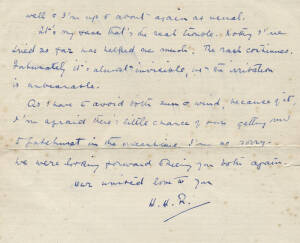 well & I'm up & about again as usual.
It's my face that's the real trouble. Nothing I've
tried so far has helped me much. The rash continues.
Fortunately it's almost invisible, but the irritation
is unbearable.
As I have to avoid both sun & wind, because of it,
I'm afraid there's little chance of our getting over
to in the meantime. I'm so sorry.
We were looking forward to seeing you both again.
Our united love to you
H. H. R.